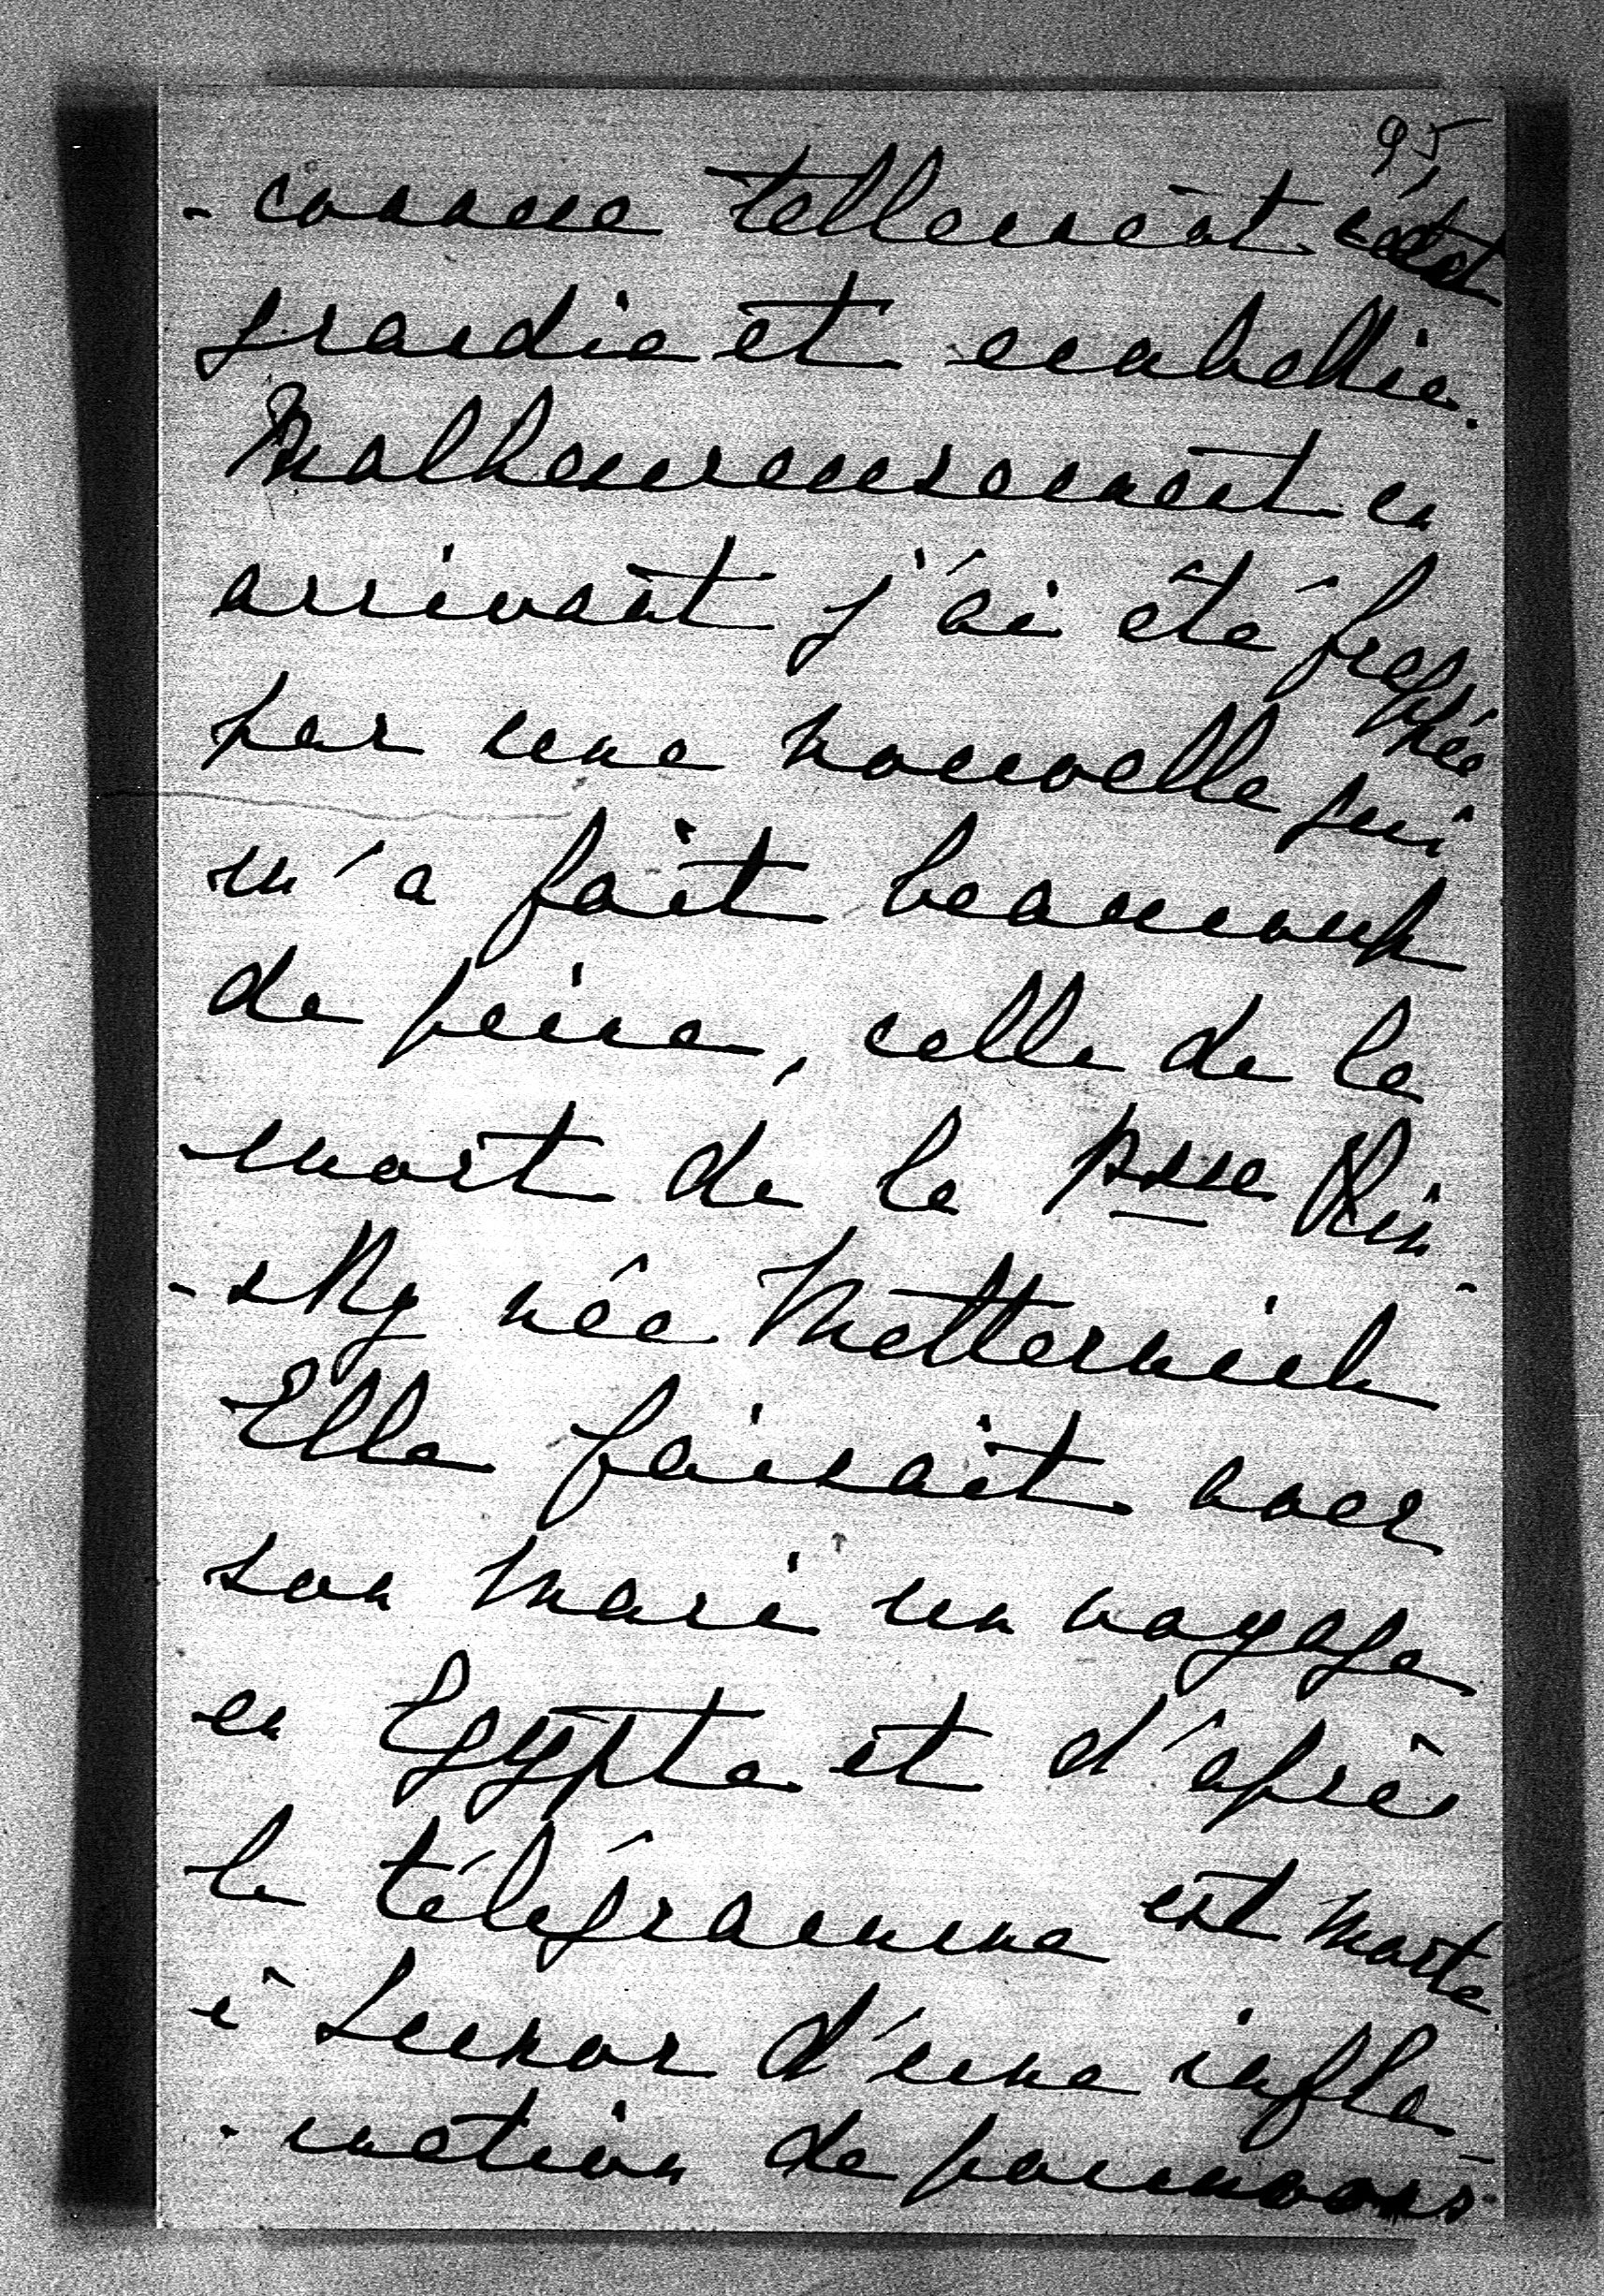 95
- connue tellement s'était
grandie et embellie.
Malheureusement en
arrivant j'ai été frappée
par une nouvelle qui
m'a fait beaucoup
de peine, celle de la
mort de la Psse Kin-
-sky née Metternich
Elle faisait avec
son mari un voyage
en Egypte et d'après
le télégramme est morte
à Luxor d'une infla-
-mation de poumons